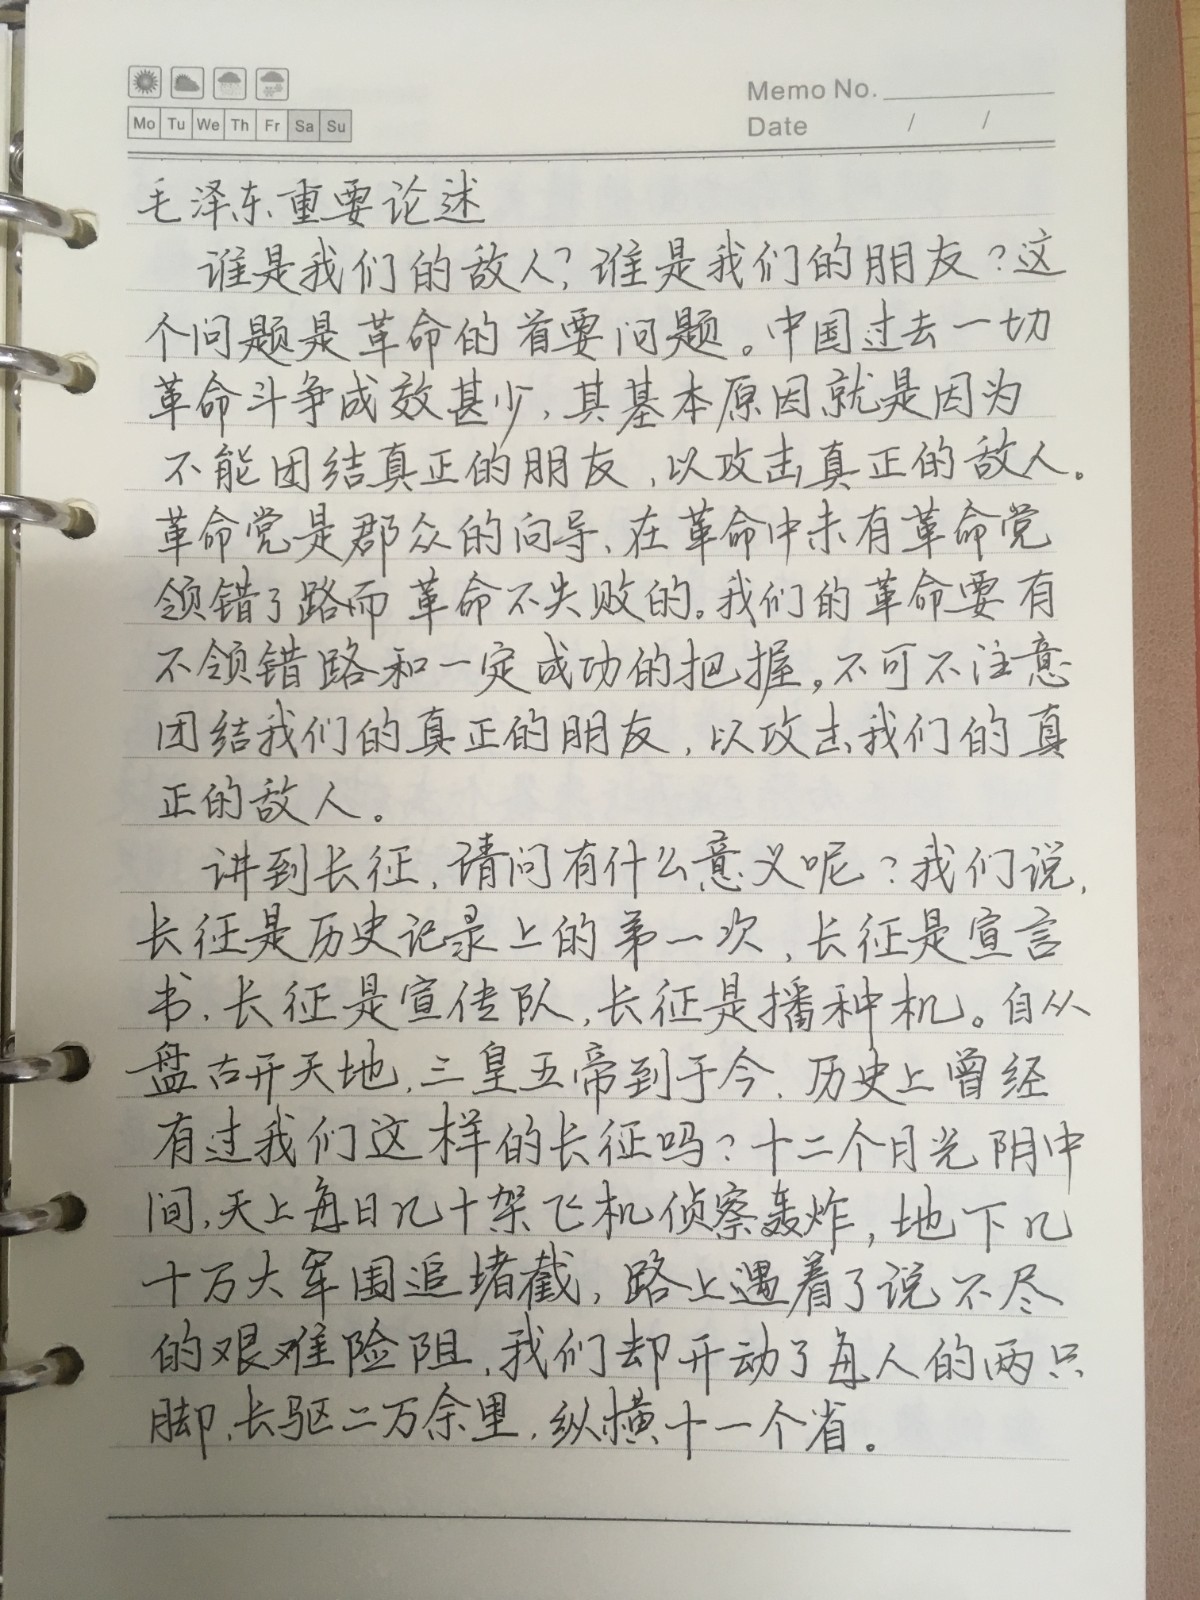 Memo No.
Mo Tu We Th Fr Sa Su
Date / /
毛泽东重要论述
谁是我们的敌人?谁是我们的朋友?这
个问题是革命的首要问题。中国过去一切
革命斗争成效甚少,其基本原因就是因为
不能团结真正的朋友,以攻击真正的敌人。
革命党是群众的向导,在革命中未有革命党
领错了路而革命不失败的。我们的革命要有
不领错路和一定成功的把握,不可不注意
团结我们的真正的朋友,以攻击我们的真
正的敌人。
讲到长征,请问有什么意义呢?我们说,
长征是历史记录上的第一次,长征是宣言
书,长征是宣传队,长征是播种机。自从
盘古开天地,三皇五帝到于今,历史上曾经
有过我们这样的长征吗?十二个月光阴中
间,天上每日几十架飞机侦察轰炸,地下几
十万大军围追堵截,路上遇着了说不尽
的艰难险阻,我们却开动了每人的两只
脚,长驱二万余里,纵横十一个省。